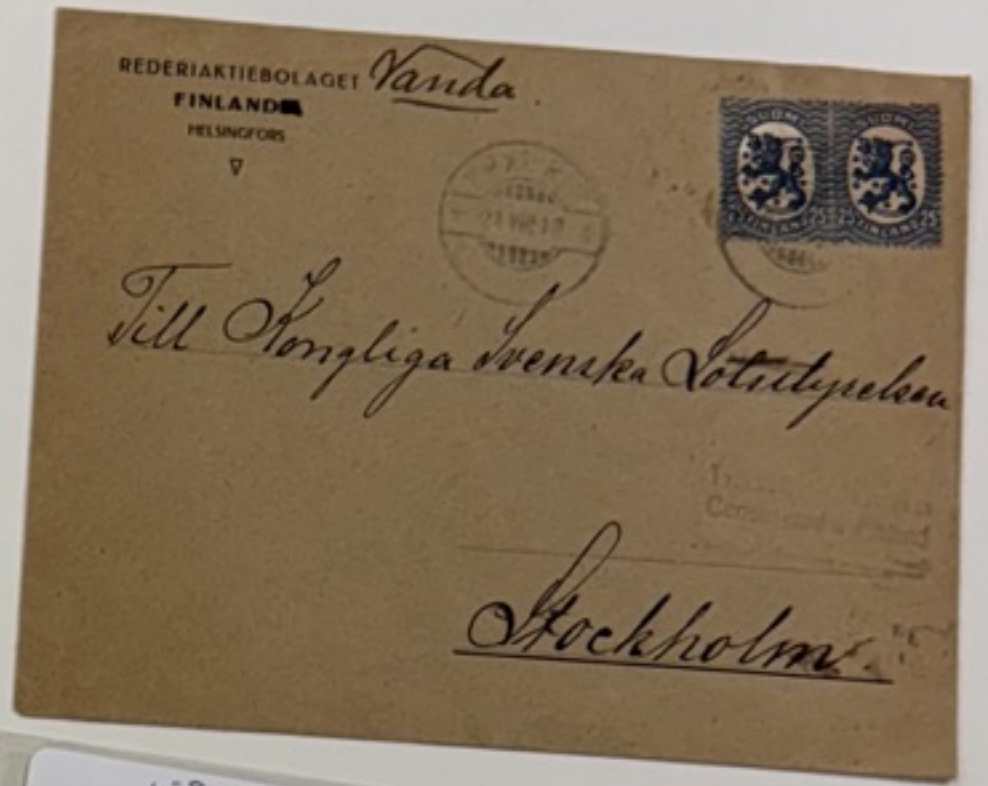 REDERIAKTIEBOLAGET Vanda
FINLAND
HELSINGFORS
SUOMI SUOMI
25 25 25
FINLAND FINLAND
Till Kongliga Svenska Lotsstyrelsen
Stockholm